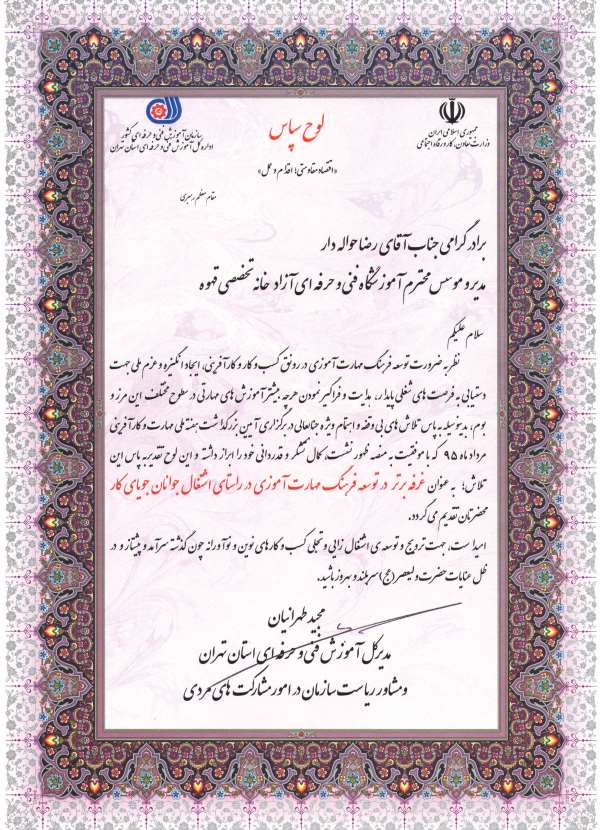 جمهوری اسلامی ایران
وزارت تعاون، کار و رفاه اجتماعی
لوح سپاس
سازمان آموزش فنی و حرفه ای کشور
اداره کل آموزش فنی و حرفه ای استان تهران
«اقتصاد مقاومتی؛ اقدام و عمل»
مقام معظم رهبری
برادر گرامی جناب آقای رضا حواله دار
مدیر و موسس محترم آموزشگاه فنی و حرفه ای آزاد خانه تخصصی قهوه
سلام علیکم
نظر به ضرورت توسعه فرهنگ مهارت آموزی در رونق کسب و کار و کارآفرینی، ایجاد انگیزه و عزم ملی جهت
دستیابی به فرصت های شغلی پایدار، هدایت و فراگیر نمودن هرچه بیشتر آموزش های مهارتی در سطوح مختلف این مرز و
بوم، بدینوسیله به پاس تلاش های بی وقفه و اهتمام ویژه جنابعالی در برگزاری آیین بزرگداشت هفته ملی مهارت و کارآفرینی
مرداد ماه ۹۵ که با موفقیت به منصه ظهور نشست، کمال تشکر و قدردانی خود را ابراز داشته و این لوح تقدیر به پاس این
تلاش؛ به عنوان غرفه برتر در توسعه فرهنگ مهارت آموزی در راستای اشتغال جوانان جویای کار
محضرتان تقدیم می گردد.
امید است، جهت ترویج و توسعه ی اشتغال زایی و تجلی کسب و کارهای نوین و نوآورانه چون گذشته سرآمد و پیشتاز و در
ظل عنایات حضرت ولیعصر (عج) سربلند و بهروز باشید.
مجید طهرانیان
مدیرکل آموزش فنی و حرفه ای استان تهران
و مشاور ریاست سازمان در امور مشارکت های مردمی